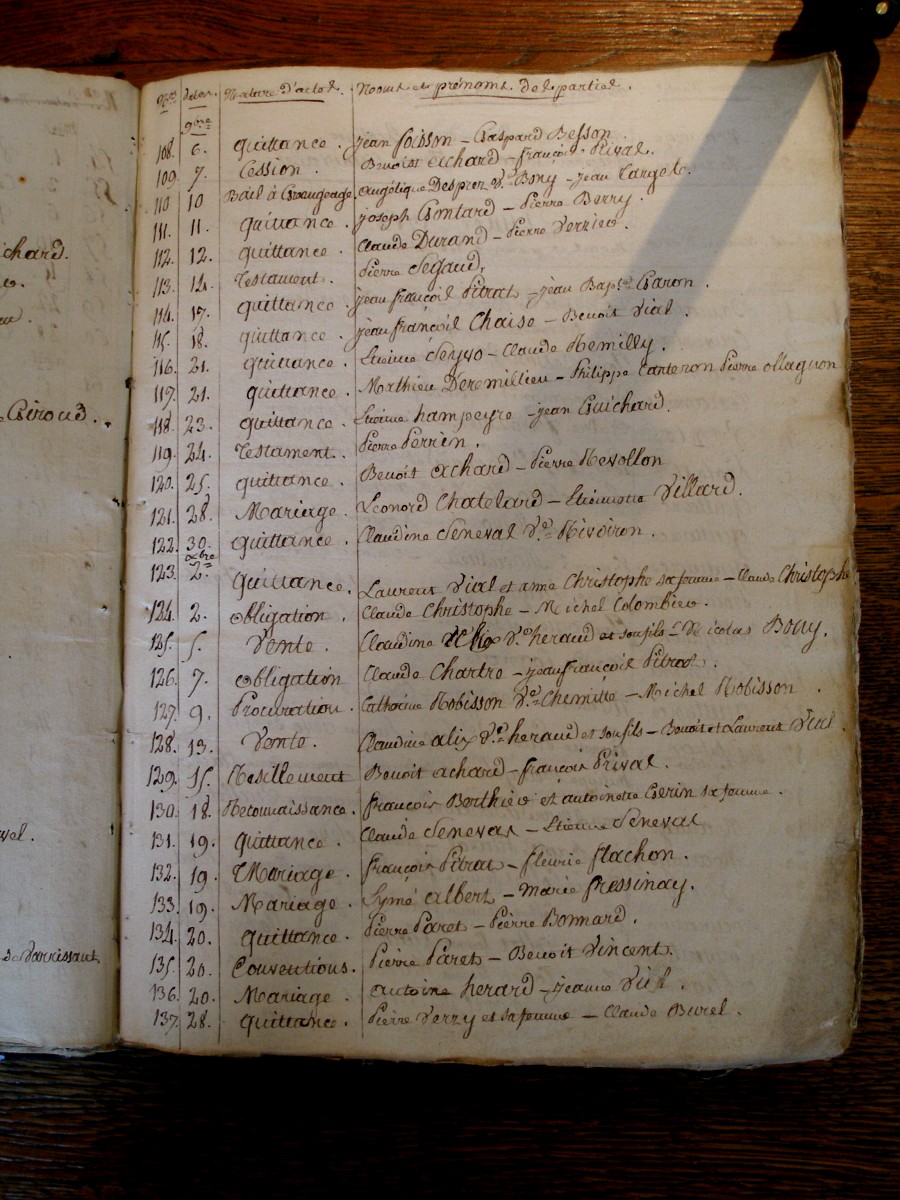 chard.
Giroud.
vel.
N.os dates. Nature d'actes. Noms et prénoms des parties.
9bre
108. 6. quittance. jean foisson - Gaspard Besson.
109. 7. Cession. Benoit achard - françois Prival.
110 10 Bail à angélique Desproz Ve. Bony - jean Largets.
111. 11. quittance. joseph Gontard - Pierre Berry.
112. 12. quittance. Claude Durand - Pierre Verrieu.
113. 14. Testament. Pierre Segaud.
114. 17. quittance. jean françois Pitrat - jean Bapte. Garon.
115. 18. quittance. jean françois Chaise - Benoit Vial.
116. 21. quittance. Etienne Seyvo - Claude Remilly.
117. 21. quittance. Matthieu Deremillieu - Philippe Canteron Pierre ollagnon
118. 23. quittance. Etienne hampeyre - jean Guichard.
119. 24. Testament. Pierre Perrin.
120. 25. quittance. Benoit achard - Pierre Revollon
121. 28. Mariage. Léonard Chatelard - Etiennette Villard.
122. 30. quittance. Claudine Seneval Ve. Rivoiron.
xbre
123. 2. quittance. Laurent Vial et anne Christophe sa femme - Claude Christophe
124. 2. obligation. Claude Christophe - Michel Colombier.
125. 5. Vente. Claudine Ve. heraud et son fils - Nicolas Bony.
126. 7. obligation Claude Chartre - jean françois Pitrat.
127. 9. Procuration. Catherine Robisson Ve. Chemitte - Michel Robisson.
128. 13. Vente. Claudine alix Ve. heraud et son fils - Benoit et Laurent Vial.
129. 15. Resillement Benoit achard - françois Prival.
130. 18. Reconnaissance. françois Berthier et antoinette Gerin sa femme.
131. 19. quittance. Claude Seneval - Etienne Seneval
132. 19. Mariage. françois Pitrat - fleurie flachon.
133. 19. Mariage. Symé albert - Marie fressinay.
134. 20. quittance. Pierre Paret - Pierre Bonnard.
135. 20. Conventions. Pierre Paret - Benoit Vincent.
136. 20. Mariage. antoine herard - jeanne Vial.
137. 28. quittance. Pierre Verzy et sa femme - Claude Burel.